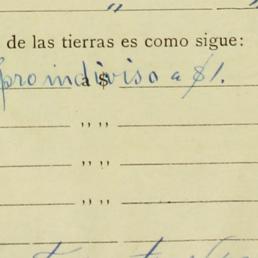 "
de las tierras es como sigue:
proindiviso a $1.
a $
" "
" "
" "